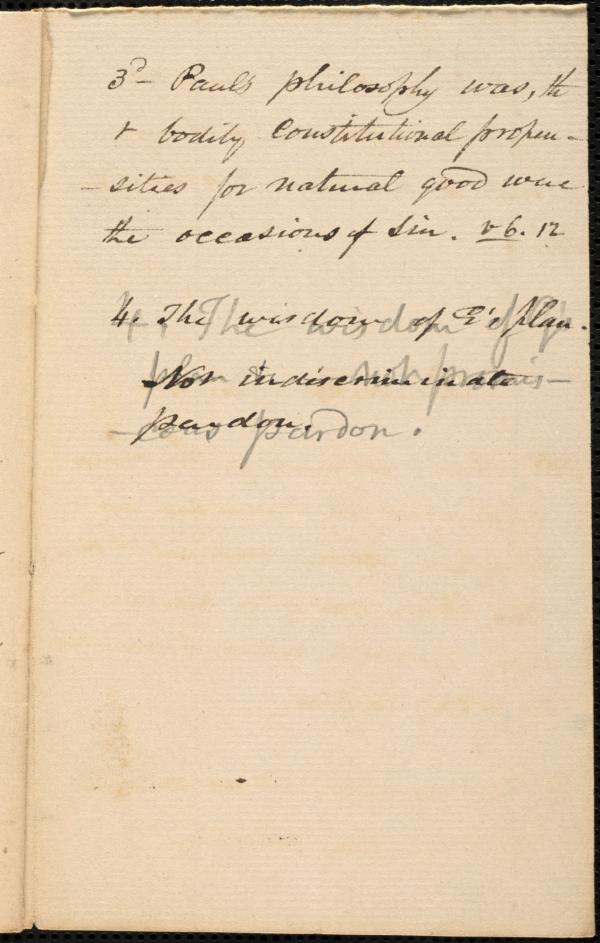 3d- Paul's philosophy was, th
+ bodily Constitutional propen-
-sities for natural good were
the occasions of Sin. v 6. 12
4. The wisdom of G's plan.
Not indiscriminate
pardon.
4. The wisdom of G's
plan not promis-
-cuous pardon.